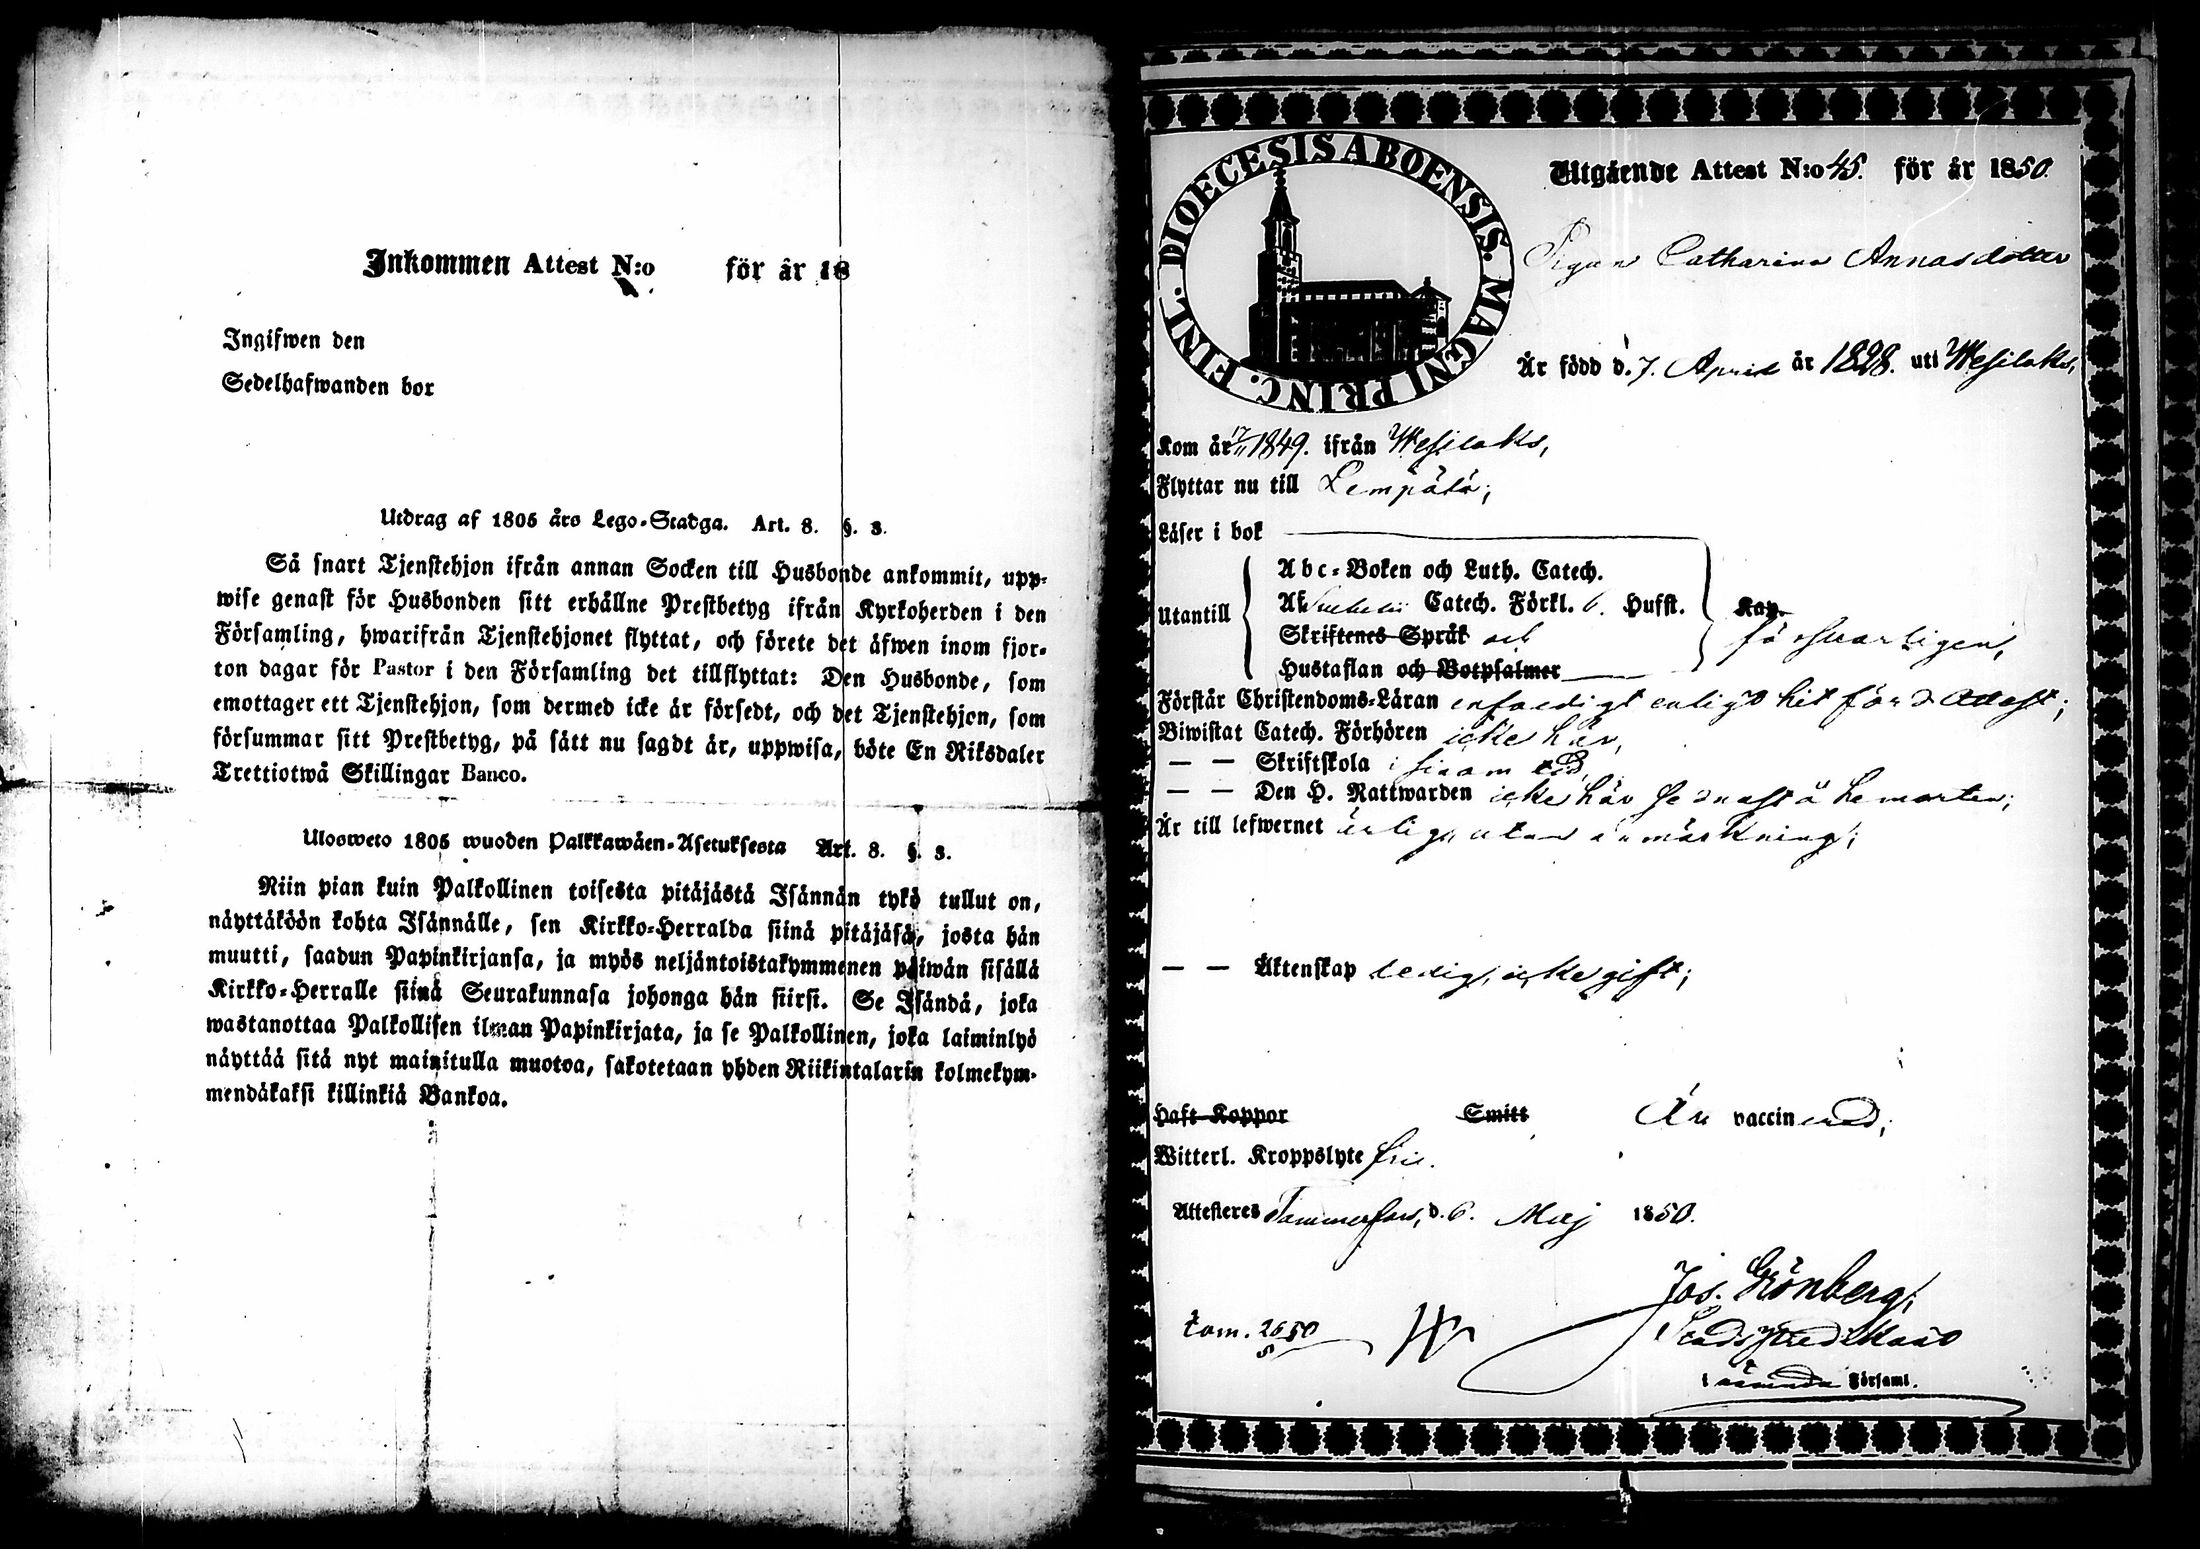 Inkommen Attest N:o för år 18
Ingifwen den
Sedelhafwanden bor
Utdrag af 1805 års Lego-Stadga. Art. 8. §. 3.
Så snart Tjenstehjon ifrån annan Socken till Husbonde ankommit, upp-
wise genast för Husbonden sitt erhållne Prestbetyg ifrån Kyrkoherden i den
Församling, hwarifrån Tjenstehjonet flyttat, och förete det äfwen inom fjor-
ton dagar för Pastor i den Församling det tillflyttat: Den Husbonde, som
emottager ett Tjenstehjon, som dermed icke är försedt, och det Tjenstehjon, som
försummar sitt Prestbetyg, på sätt nu sagdt är, uppwisa, böte En Riksdaler
Trettiotwå Skillingar Banco.
Ulosweto 1805 wuoden Palkkawäen-Asetuksesta Art. 8. §. 3.
Niin pian kuin Palkollinen toisesta pitäjästä Isännän tykö tullut on,
näyttäköön kohta Isännälle, sen Kirkko-Herralda siinä pitäjäsä, josta hän
muutti, saadun Papinkirjansa, ja myös neljäntoistakymmenen päiwän sisällä
Kirkko-Herralle siinä Seurakunnasa johonga hän siirsi. Se Isändä, joka
wastanottaa Palkollisen ilman Papinkirjata, ja se Palkollinen, joka laiminlyö
näyttää sitä nyt mainitulla muotoa, sakotetaan yhden Riikintalarin kolmekym-
mendäkaksi killinkiä Bankoa.
DIOECESIS ABOENSIS. MAGNI PRINC. FINL.
Utgående Attest N:o 45. för år 1850
Pigan Catharina Annasdotter
Är född d. 7. April år 1828. uti Wesilaks,
Kom år 17/11 1849. ifrån Wesilaks,
Flyttar nu till Lempälä;
Läser i bok
Abc-Boken och Luth. Catech.
Utantill Catech. Förkl. 6. Hufst. Kap.
Skriftenes Språk och försvarligen,
Hustaflan och Botpsalmer
Förstår Christendoms-Läran enfaldigt enligt hitförd Attest;
Biwistat Catech. Förhören icke här,
— — Skriftskola i sinom tid,
— — Den H. Nattwarden icke här sednast å hemorten;
Är till lefwernet ärlig, utan anmärkning;
— — Äktenskap ledig, icke gift;
Haft Koppor Smitt Är vaccinerad;
Witterl. Kroppslyte fri.
Attesteres Tammerfors, d. 6. Maj 1850.
Jos. Grönberg,
Stadspredikant
i nämnda Församl.